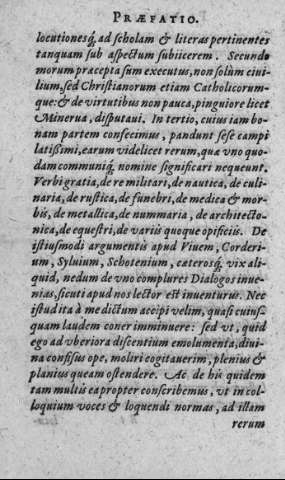 PRÆFATIO.
locutionesq́; ad scholam & literas pertinentes
tanquam sub aspectum subiicerem. Secundo
morum præcepta sum executus, non solùm ciui-
lium, sed Christianorum etiam Catholicorum-
que: & de virtutibus non pauca, pinguiore licet
Minerua, disputaui. In tertio, cuius iam bo-
nam partem confecimus, pandunt sese campi
latissimi, earum videlicet rerum, quæ vno quo-
dam communiq́; nomine significari nequeunt.
Verbi gratia, de re militari, de nautica, de culi-
naria, de rustica, de funebri, de medica & mor-
bis, de metallica, de nummaria, de architecto-
nica, de equestri, de variis quoque opificiis. De
istiusmodi argumentis apud Viuem, Corderi-
um, Syluium, Schotenium, cæterosq́; vix ali-
quid, nedum de vno complures Dialogos inue-
nias, sicuti apud nos lector est inuenturus. Nec
istud ita à me dictum accipi velim, quasi cuius-
quam laudem coner imminuere: sed vt, quid
ego ad vberiora discentium emolumenta, diui-
na confisus ope, moliri cogitauerim, plenius &
planius queam ostendere. Ac de his quidem
tam multis ea propter conscribemus, vt in col-
loquium voces & loquendi normas, ad illam
rerum